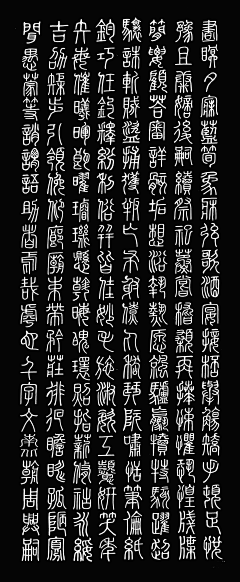 晝眠夕寐藍筍象床弦歌酒宴接杯舉觴矯手頓足悅
豫且康嫡後嗣續祭祀蒸嘗稽顙再拜悚懼恐惶牋牒
簡要顧答審詳骸垢想浴執熱願涼驢騾犢特駭躍超
驤誅斬賊盜捕獲叛亡布射僚丸嵇琴阮嘯恬筆倫紙
鈞巧任釣釋紛利俗並皆佳妙毛施淑姿工顰妍笑年
矢每催曦暉朗曜璇璣懸斡晦魄環照指薪修祜永綏
吉劭矩步引領俯仰廊廟束帶矜莊徘徊瞻眺孤陋寡
聞愚蒙等誚謂語助者焉哉乎也千字文翰周興嗣